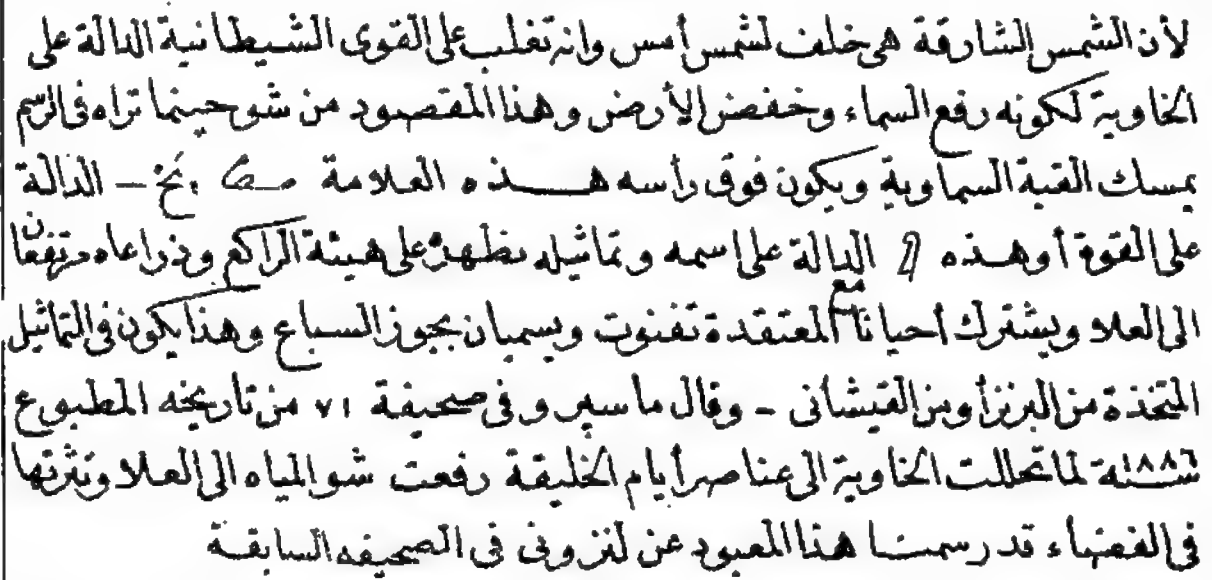 لأن الشمس الشارقة هى خلف لشمس أمس وانه تغلب على القوى الشيطانية الدالة على
الخاوية لكونه رفع السماء وخفض الأرض وهذا المقصود من شو حينما تراه فى الرسم
يمسك القبة السماوية ويكون فوق رأسه هذه العلامة نخ – الدالة
على القوة أو هذه الدالة على اسمه وتماثيله تظهر على هيئة الراكع وذراعاه مرتفعان
الى العلا ويشترك أحيانا مع المعتقدة تفنوت ويسميان بجوز السباع وهذا يكون فى التماثيل
المتخذة من البرنز أو من القيشانى – وقال ماسپرو فى صحيفة ٧١ من تاريخه المطبوع
سنة ١٨٨٦ لما تحللت الخاوية الى عناصر أيام الخليقة رفعت شو المياه الى العلا ونثرتها
فى الفضاء قد رسمنا هذا المعبود عن لنزونى فى الصحيفه السابقة